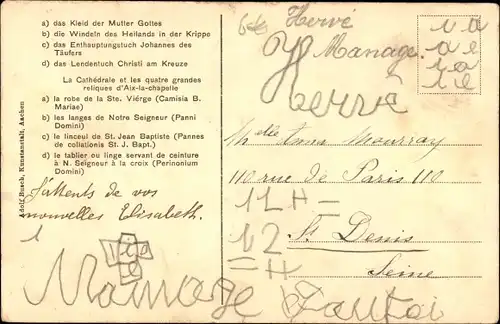 a) das Kleid der Mutter Gottes
b) die Windeln des Heilands in der Krippe
c) das Enthauptungstuch Johannes des
Täufers
d) das Lendentuch Christi am Kreuze
La Cathédrale et les quatre grandes
reliques d'Aix-la-chapelle
a) la robe de la Ste. Viérge (Camisia B.
Mariae)
b) les langes de Notre Seigneur (Panni
Domini)
c) le linceul de St. Jean Baptiste (Pannes
de collationis St. J. Bapt.)
d) le tablier ou linge servant de ceinture
à N. Seigneur à la croix (Perinonium
Domini)
Adolf Bosch, Kunstanstalt, Aachen
J'attents de vos
nouvelles Elisabeth.
Hervé
Manage
Hervé
Mourray
110 rue de Paris 110
12 H
12
H
St Denis
Seine